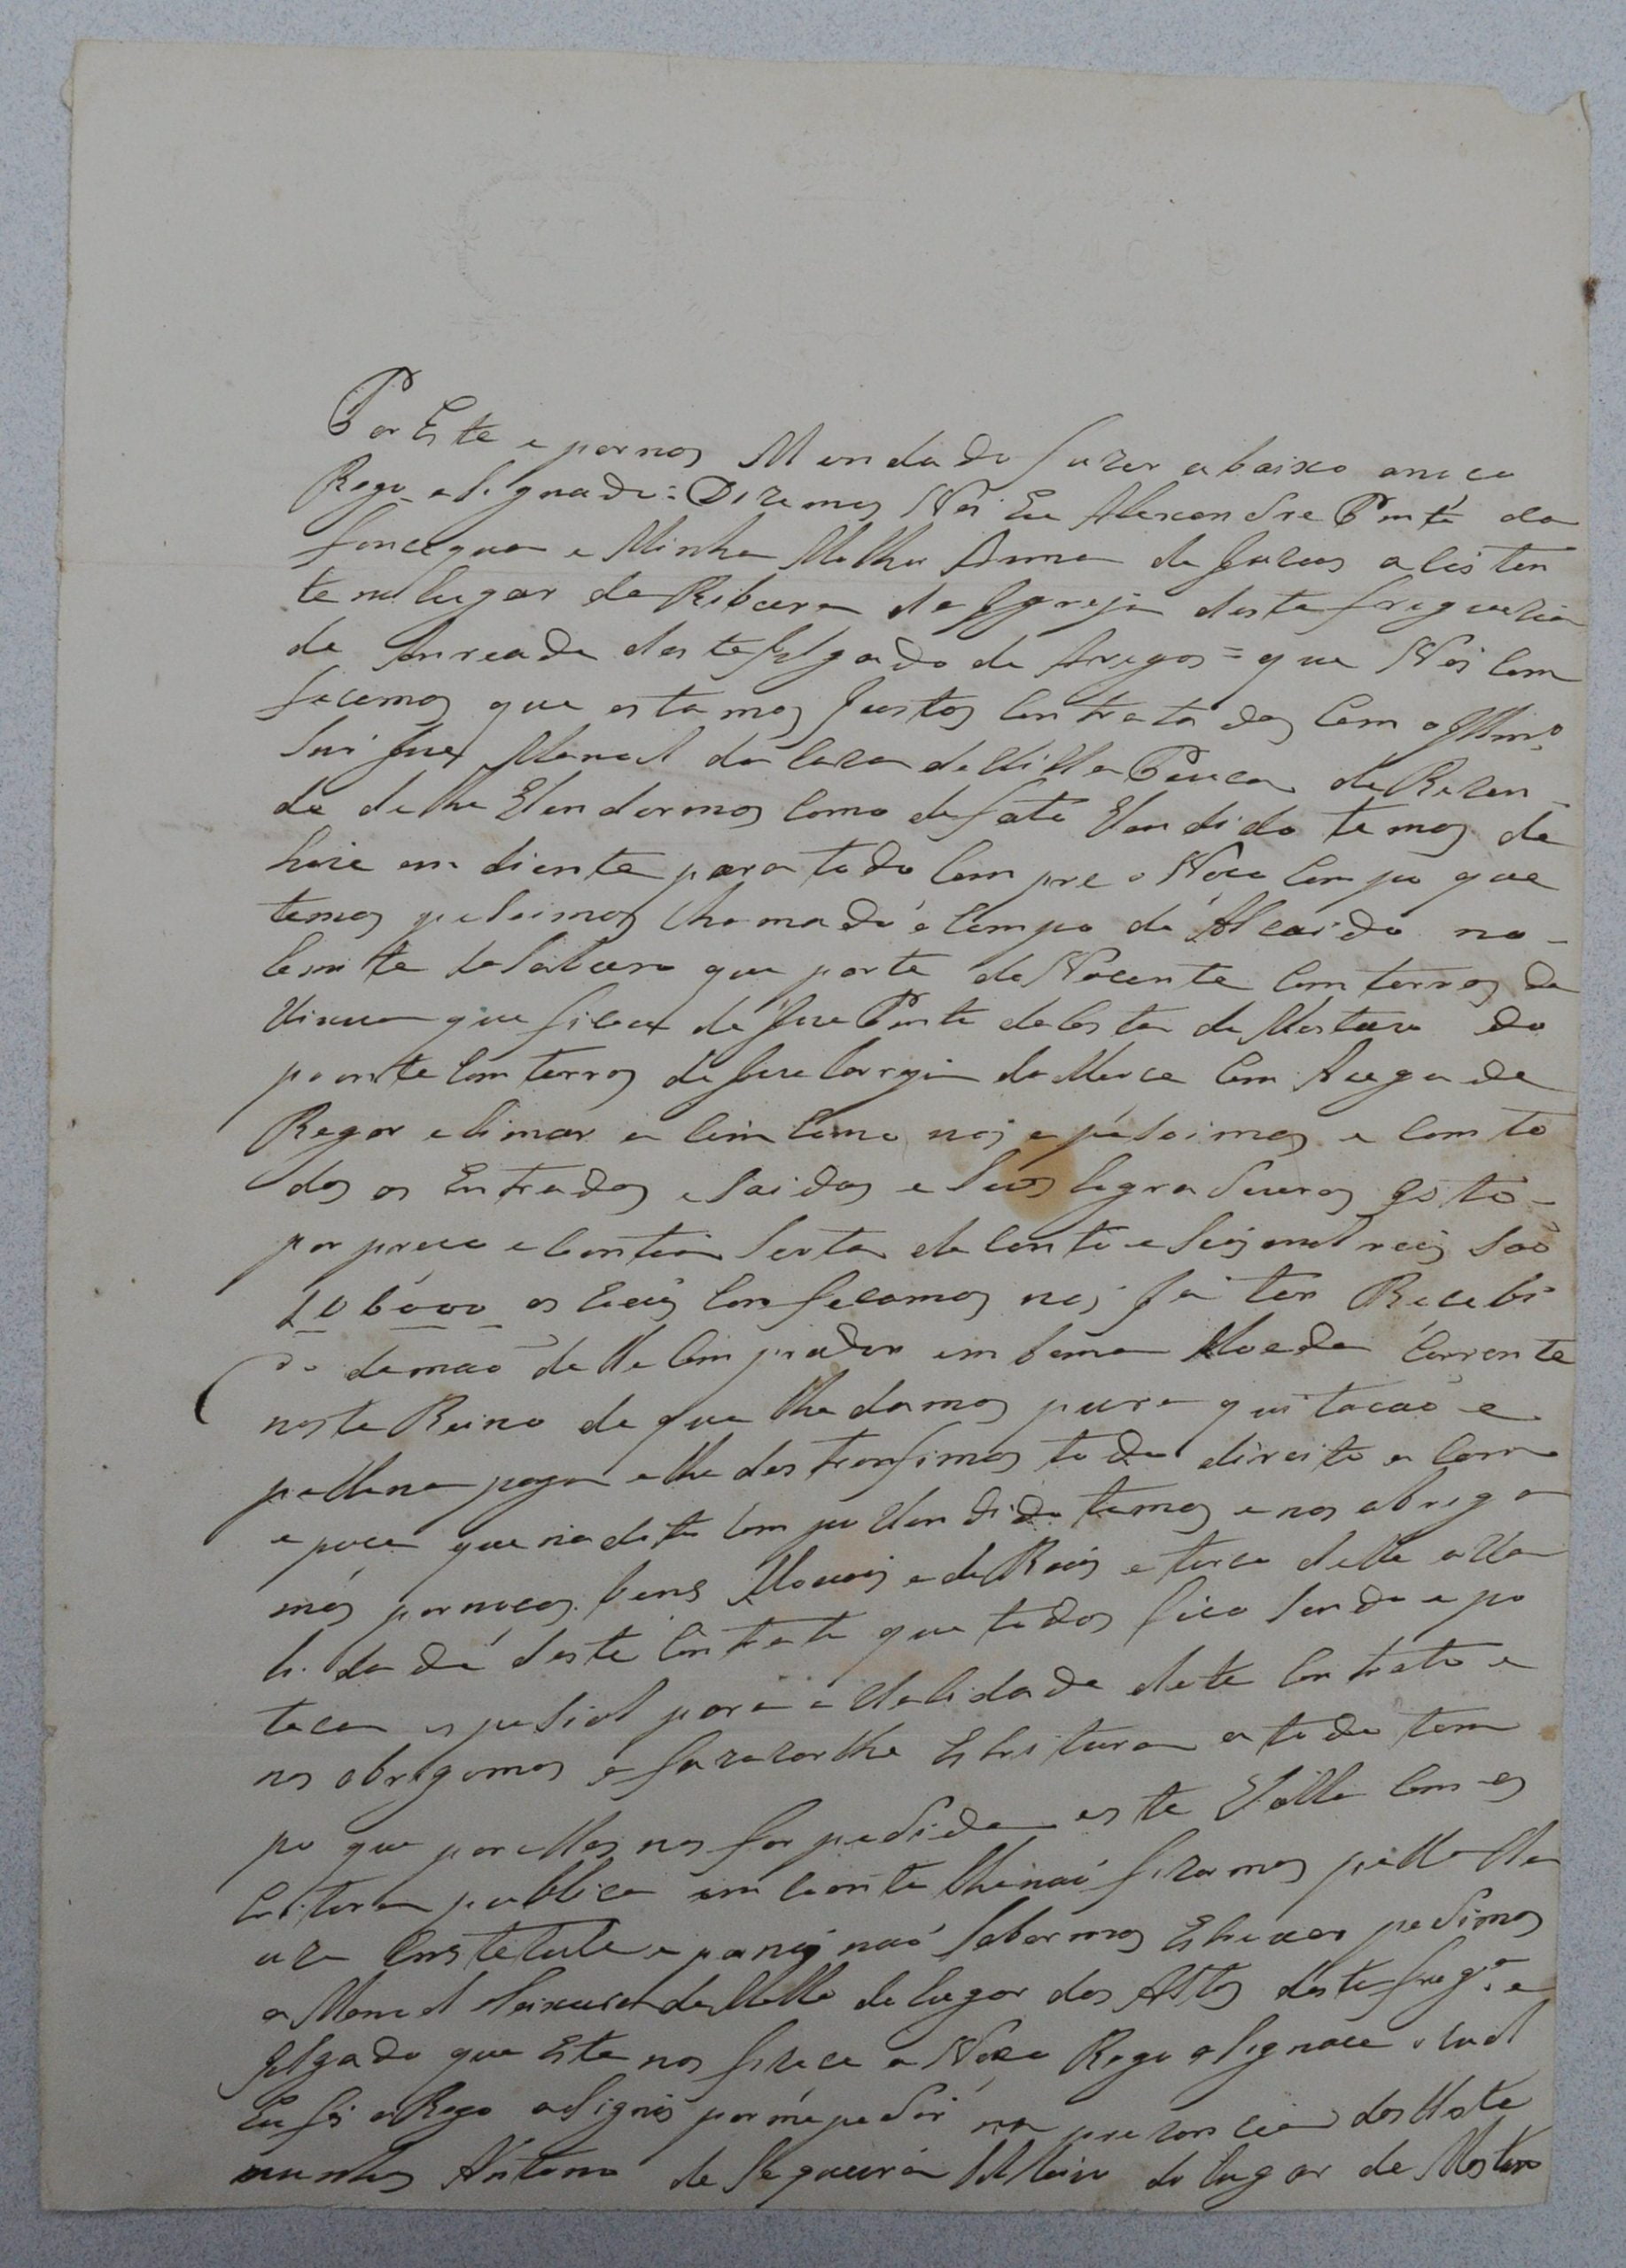 Por Este e por nos Mandado fazer abaixo anoco
Rogo asignado: Dizemos Nós Eu Alexandre Pinto da
foncequa e Minha Molher Anna de Jezus asisten
te no lugar da Ribeira da Igreja desta freguezia
de Anreade deste Julgado de Aregos = que Nós com
fecamos que estamos Justos Contratados Com o Illmo
Snr Joze Manoel da Caza de Villa Pouca de Rezen-
de de lhe Vendermos Como de fato Vendido temos de
hoie em diente para todo Cempre o Noco Campo que
temos pesoimos Chamado o Campo do Alcaido no-
lemite da que parte do Nacente Com terras da
Viuva que ficou de Joze Pinto da Costa de Masteiro do
poente Com terras de Joze Correia da Com Auga de
Regar e limar a Cim Como nos o pesoimos e Com to
das as Entradas e Saidas e Seus logradouros Isto-
por preco e Contia Serta de Cento e Seis mil reis São
106000 os Coais Confecamos nos Já ter Recebi
do da mão delle Comprador em boma Moeda Corrente
neste Reino de que lhe damos pura quitacão e
pellena paga e lhe destrasfimos todo direito a Com
e poce que no dito Campo Vendido temos e nos obriga
mos por nocos bens Moveis e de Raiz e terca delle a Va
lidade deste Contrato que todos fica Sendo epo
teca espesial para a Validade deste Contrato e
nos obrigamos a fazerlhe Eskritura a todo tem
po que por elles nos for pedida este Valha Com es
critura publica em coanto lhe não fizermos pella Ma
e por nós não Sabermos Eskrever pedimos
a Manoel Teixeira de Mello do lugar dos Altos desta fregª e
Julgado que Este nos fizece a Noco Rogo asignace o coal
Eu fis a Rogo asignei por me pedir na prezencia das teste
munhas Antonio de Sequeira do lugar de Masteiro